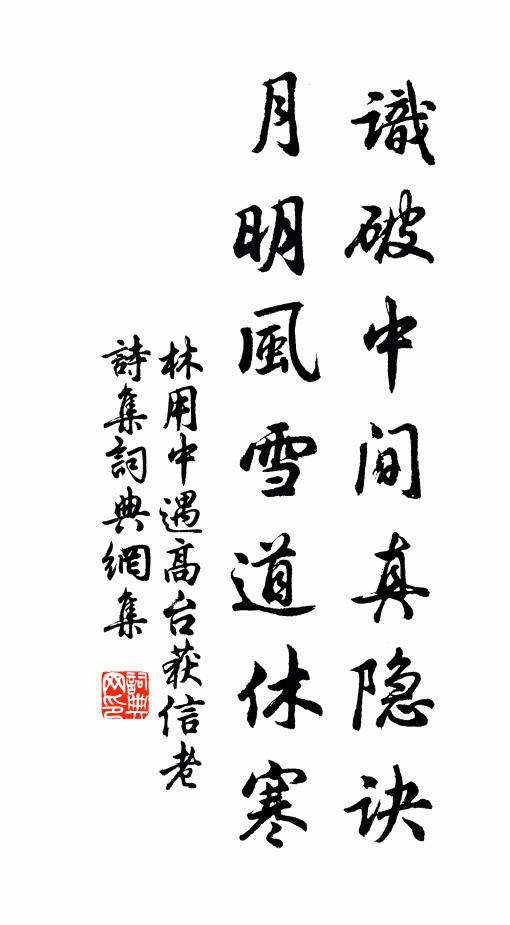 識破中间真隐诀
月明風雪道休寒
林用中遇高台获信老
詩集詞典網集
詞典網印